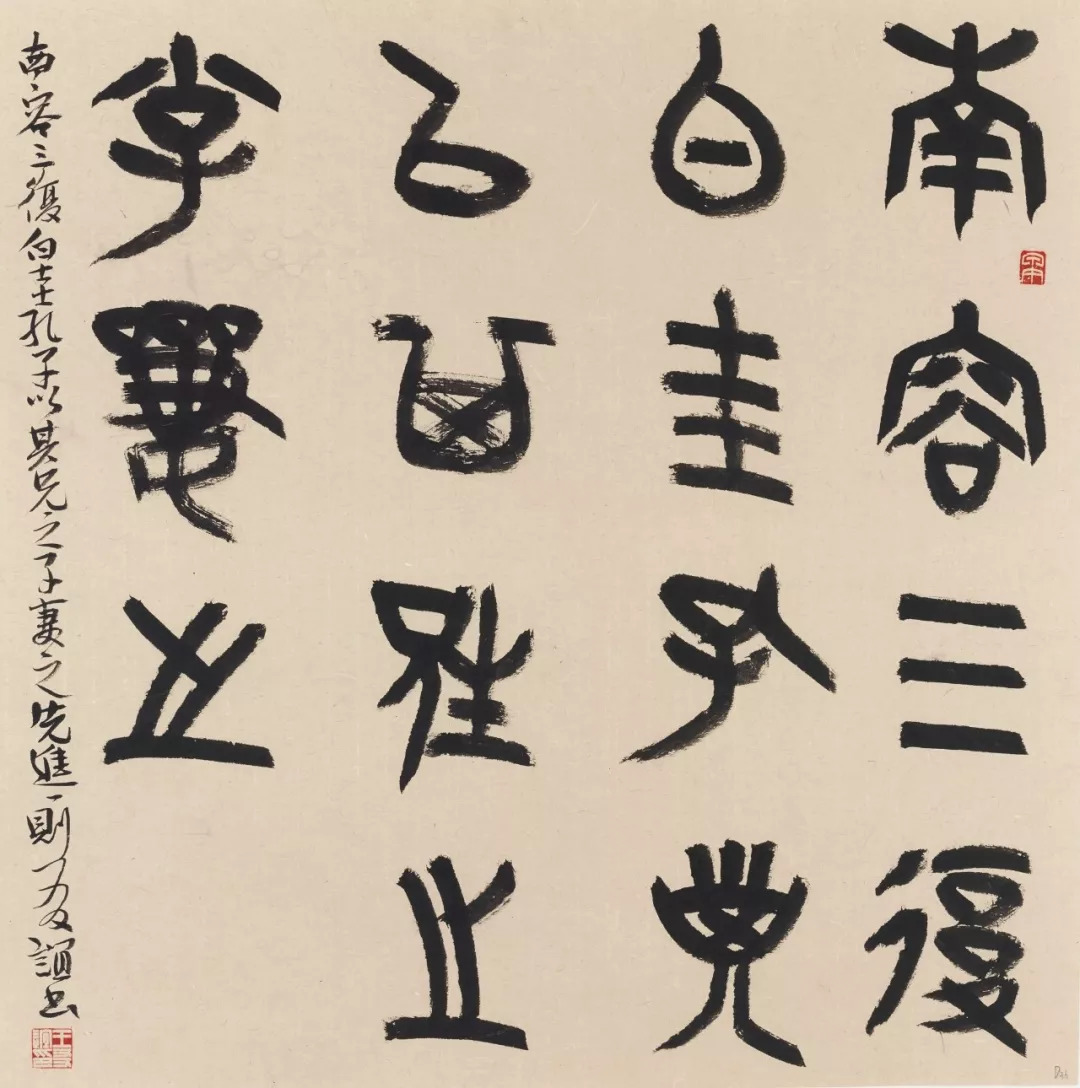 南容三復
白圭孔子
以其兄之
子妻之
南容三復白圭孔子以其兄之子妻之先進一則友誼书
王友誼印